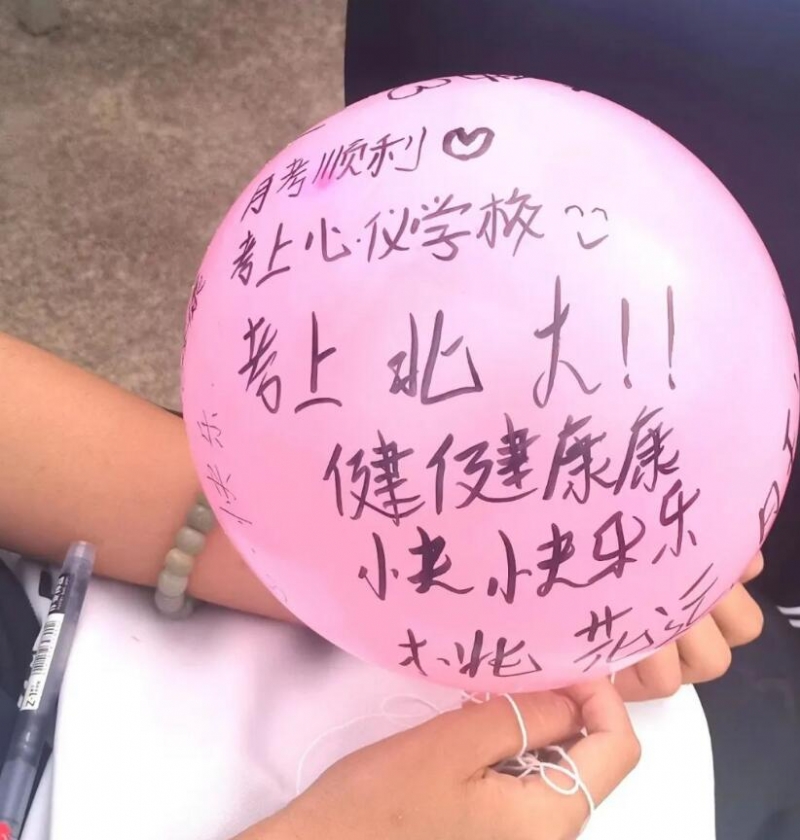 月考顺利
考上心仪学校
考上北大!!
健健康康
快快乐乐
桃花运
快乐